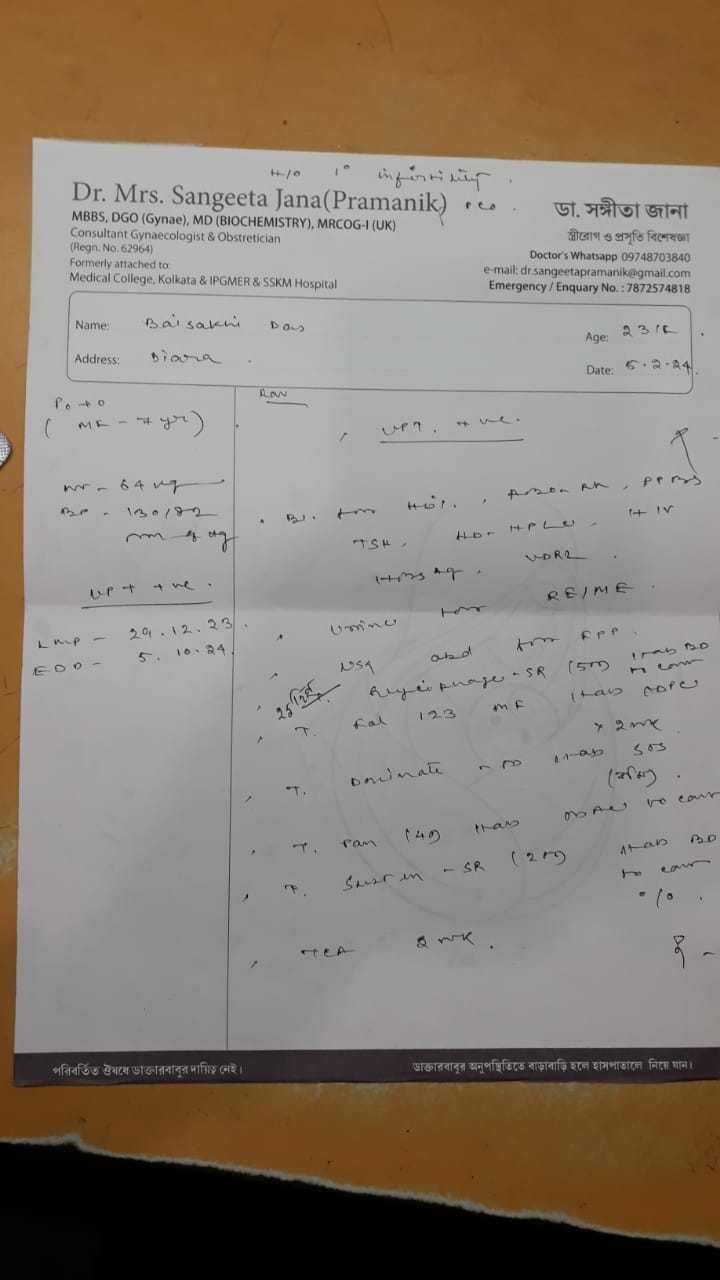 H/O 1° infertility.
Dr. Mrs. Sangeeta Jana(Pramanik)
MBBS, DGO (Gynae), MD (BIOCHEMISTRY), MRCOG-I (UK)
Consultant Gynaecologist & Obstretician
(Regn. No. 62964)
Formerly attached to:
Medical College, Kolkata & IPGMER & SSKM Hospital
ডা. সঙ্গীতা জানা
স্ত্রীরোগ ও প্রসূতি বিশেষজ্ঞা
Doctor's Whatsapp 09748703840
e-mail: dr.sangeetapramanik@gmail.com
Emergency / Enquary No. : 7872574818
Name: Baisakhi Das
Age: 23/F
Address: Diara
Date: 5.2.24
P0+0
(MF - 7 yr)
Wt - 64 kg
BP - 130/82
mm of Hg
UPT +ve.
LMP - 29.12.23
EDD - 5.10.24
Adv
UPT. +ve.
Bl. for Hb%, ABO-Rh, PPBS
TSH, Hb-HPLC. HIV
HBsAg. VDRL.
Urine for RE/ME.
USG abd for FPP.
SR (500) 1 tab BD
to cont
T. Fol 123 MF 1 tab ODPC
x 2 wk
T. Doxinate - 1 tab SOS
T. Pan (40) 1 tab ODAC to cont
T. Susten - SR (200) 1 tab BD
to cont
2 wk.
পরিবর্তিত ঔষধে ডাক্তারবাবুর দায়িত্ব নেই।
ডাক্তারবাবুর অনুপস্থিতিতে বাড়াবাড়ি হলে হাসপাতালে নিয়ে যান।